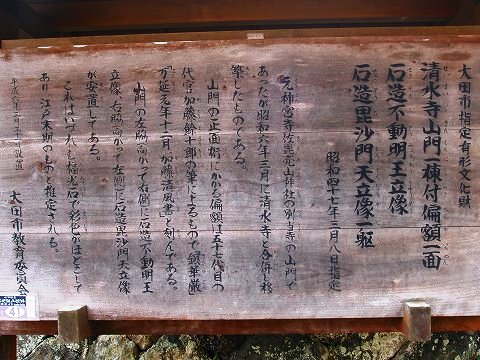 大田市指定有形文化財
清水寺山門一棟付偏額一面
石造不動明王立像
石造毘沙門天立像一躯
昭和四十七年二月八日指定
元神宮寺(佐毘売山神社の別当寺)の山門で
あったが昭和六年三月に清水寺と合併し移
築したものである。
山門の正面桁にかかる偏額は五十七代目の
代官加藤餘十郎の筆によるもので「銀華厳」
「万延元年十一月 加藤清風書」と刻んである。
山門の左脇(向かって右側)に石造不動明王
立像、右脇(向かって左側)に石造毘沙門天立像
が安置してある。
これはいづれも福光石で彩色がほどこして
あり、江戸末期のものと推定される。
平成六年三月三十一日設置
大田市教育委員会
41